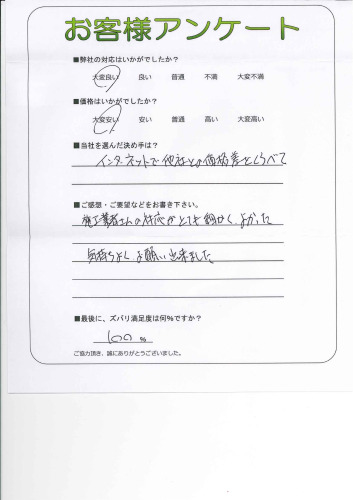 お客様アンケート
■弊社の対応はいかがでしたか？
大変良い 良い 普通 不満 大変不満
■価格はいかがでしたか？
大変安い 安い 普通 高い 大変高い
■当社を選んだ決め手は？
インターネットで他社との価格差をくらべて
■ご感想・ご要望などをお書き下さい。
施工業者さんの対応がとても細かく、よかった
気持ちよくお願い出来ました
■最後に、ズバリ満足度は何％ですか？
100 %
ご協力頂き、誠にありがとうございました。